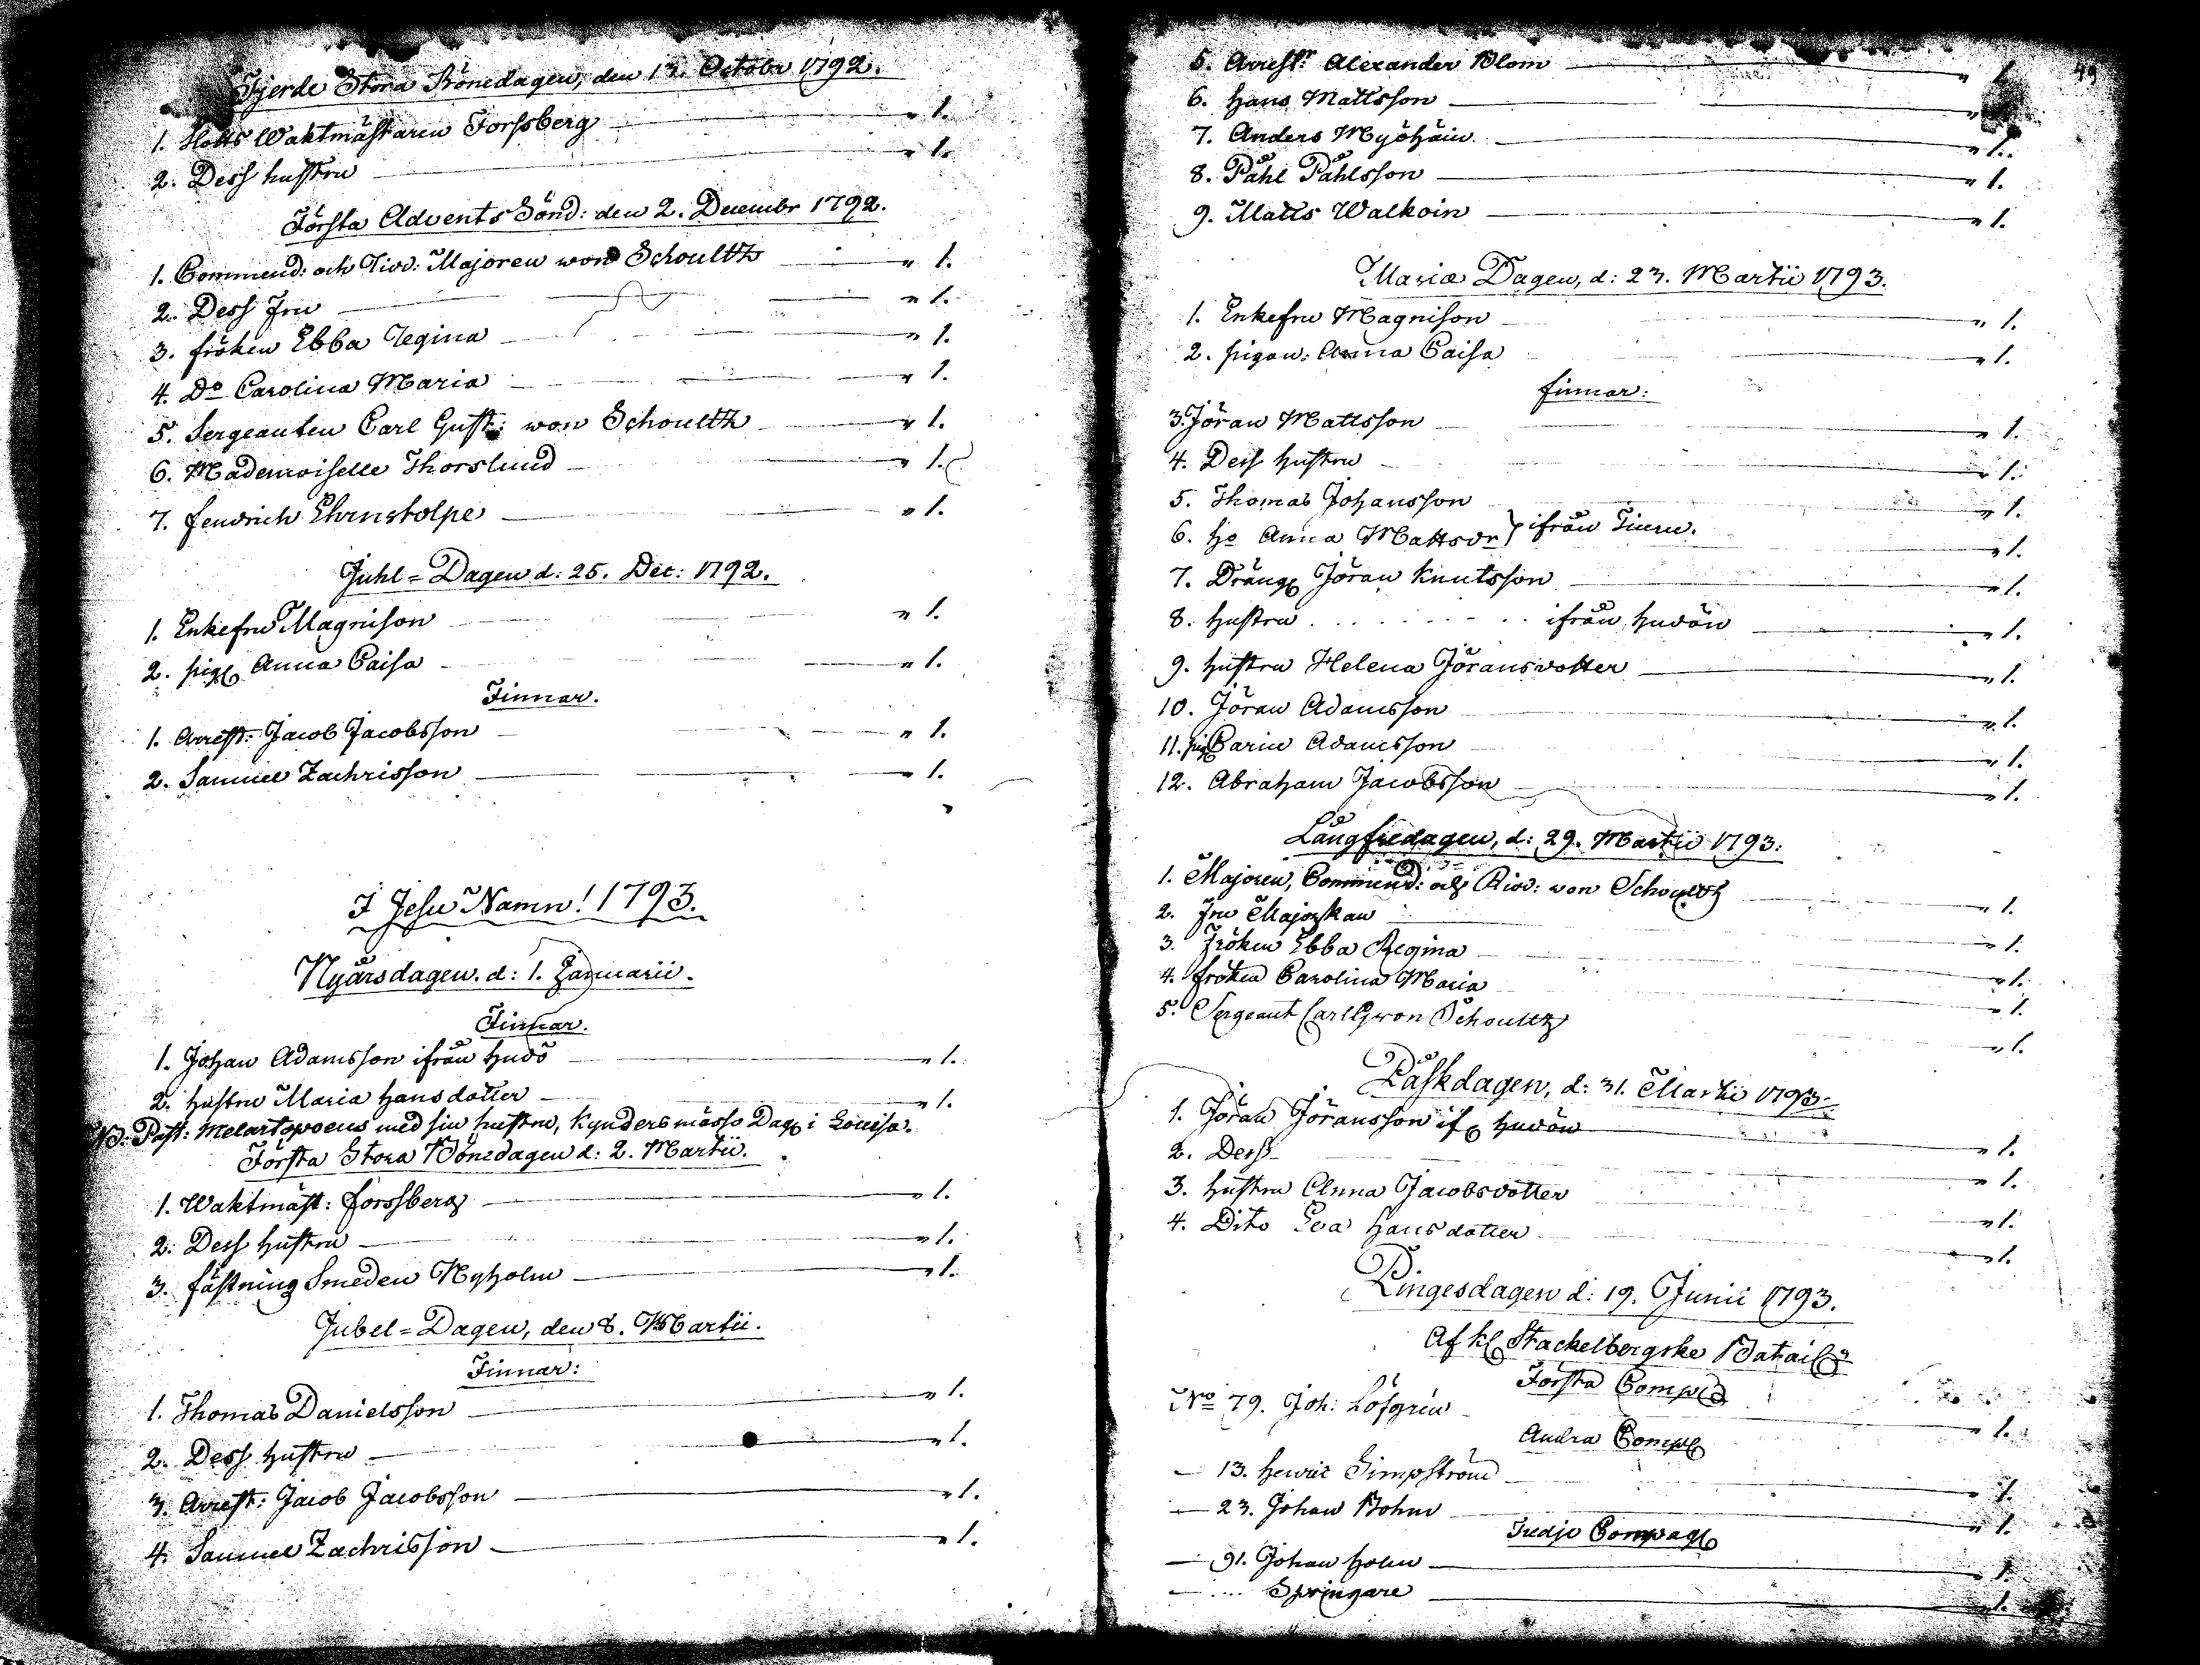 Fjerde Stora Bönedagen, den 13. Octobr 1792.
1. Slotts Waktmästaren Forssberg " 1.
2. Dess hustru " 1.
Första Advents Sönd: den 2. Decembr 1792.
1. Commend: och Ridd: Majoren von Schoultz " 1.
2. Dess Fru " 1.
3. fröken Ebba Regina " 1.
4. Do Carolina Maria " 1.
5. Sergeanten Carl Gust: von Schoultz " 1.
6. Mademoiselle Thorslund " 1.
7. fendrich Ehrnstolpe " 1.
Juhl=Dagen d: 25. Dec: 1792.
1. Enkefru Magnison " 1.
2. pig. Anna Caisa " 1.
Finnar.
1. Arrest: Jacob Jacobsson " 1.
2. Samuel Zachrisson " 1.
I Jesu Namn! 1793.
Nyårsdagen. d: 1. Januarii.
Finnar.
1. Johan Adamsson ifrån hudö " 1.
2. hustru Maria hansdotter " 1.
NB: Past: Melartopoeus med sin hustru, Kyndersmässo Dag. i Lovisa.
Första Stora Bönedagen d: 2. Martii.
1. Waktmäst: forssberg " 1.
2. Dess hustru " 1.
3. fästning Smeden Nyholm " 1.
Jubel=Dagen, den 8. Martii.
Finnar:
1. Thomas Danielsson " 1.
2. Dess hustru " 1.
3. Arrest: Jacob Jacobsson " 1.
4. Samuel Zachrisson " 1.
49
5. Arrestr Alexander Blom " 1.
6. hans Mattsson "
7. Anders Myöhäin " 1.
8. Påhl Påhlsson " 1.
9. Matts Walkoin " 1.
Mariæ Dagen, d: 23. Martii 1793.
1. Enkefru Magnison " 1.
2. pigan: Anna Caisa " 1.
finnar:
3. Jöran Mattsson " 1.
4. Dess hustru " 1.
5. Thomas Johansson " 1.
6. ho Anna Mattsdr } ifrån " 1.
7. Dräng. Jöran Knutsson " 1.
8. hustru . . . . . . . ifrån hudön " 1.
9. hustru Helena Jöransdotter " 1.
10. Jöran Adamsson " 1.
11. pig. Carin Adamsson " 1.
12. Abraham Jacobsson " 1.
Långfredagen, d: 29. Martii 1793.
1. Majoren, Commend: och Rid: von Schoultz " 1.
2. Fru Majorskan " 1.
3. Fröken Ebba Regina " 1.
4. fröken Carolina Maria " 1.
5. Sergeant Carl G von Schoultz " 1.
Påskdagen, d: 31. Martii 1793.
1. Jöran Jöransson if. hudön " 1.
2. Dess " 1.
3. hustru Anna Jacobsdotter " 1.
4. Dito Eva hansdotter " 1.
Pingesdagen d: 19. Junii 1793.
Af Kl. Stackelbergske Batailn
Första Comp.
No 79. Joh: Löfgren " 1.
Andra Comp.
— 13. henric Simpström " 1.
— 23. Johan Bohm " 1.
Tredje Compag.
— 91. Johan holm " 1.
— ... Springare " 1.